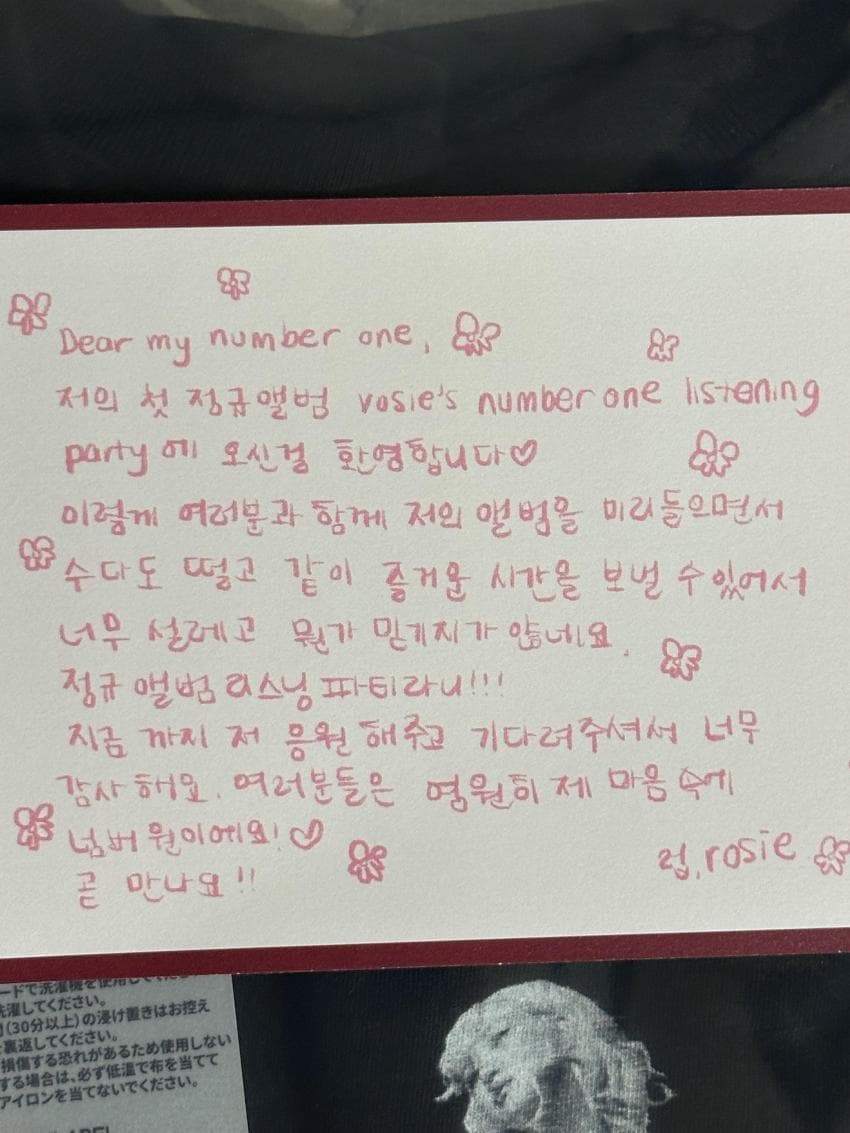 Dear my number one,
저의 첫 정규앨범 rosie's number one listening
party에 오신걸 환영합니다♡
이렇게 여러분과 함께 저의 앨범을 미리들으면서
수다도 떨고 같이 즐거운 시간을 보낼 수있어서
너무 설레고 뭔가 믿기지가 않네요.
정규 앨범 리스닝 파티라니!!!
지금 까지 저 응원 해주고 기다려주셔서 너무
감사 해요. 여러분들은 영원히 제 마음 속에
넘버 원이에요!♡
곧 만나요!!
럽, rosie
ードで洗濯機を使用してくださ
洗濯してください。
(30分以上)の浸け置きはお控え
裏返してください。
損傷する恐れがあるため使用しない
する場合は、必ず低温で布を当てて
アイロンを当てないでください。